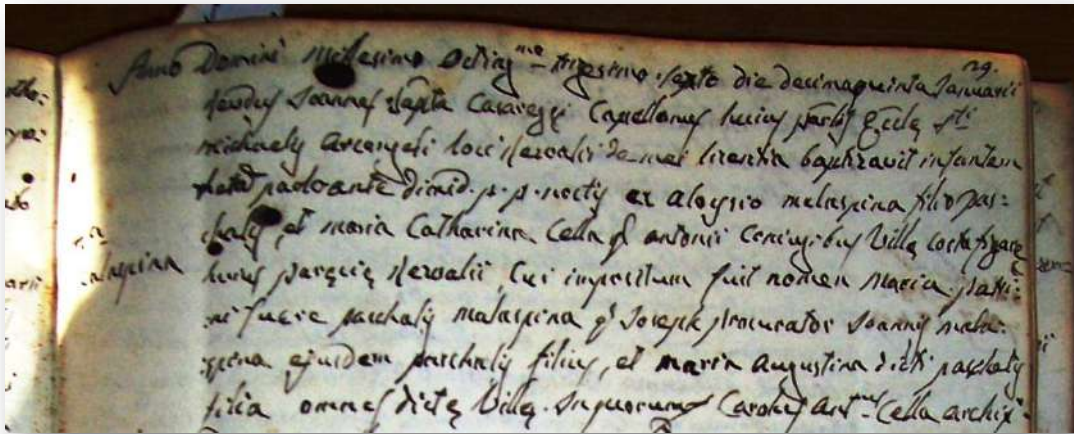 29.
Anno Domini Millesimo Octing.mo trigesimo sexto die decimaquinta Januarii
Joannes Bapta Casareggi Capellanus huius Parlis Eccle Sti
Michaelis Arcangeli loci de mei licentia baptizavit infantem
natã paolo ante dimid. p. p. noctis ex Aloysio Malaspina filio Pas=
chalis, et Maria Catharina Cella qd Antonii Coniugibus Villę Costafigarę
huius Paręcię cui impositum fuit nomen Maria. Patri=
ni fuere Paschalis Malaspina qd Joseph procurator Joannis Mala=
spina ejusdem Paschalis filius, et Maria Augustina dicti Paschalis
filia omnes dictę Villę. In quorum Carolus Ant.us Cella Archip
Malaspina